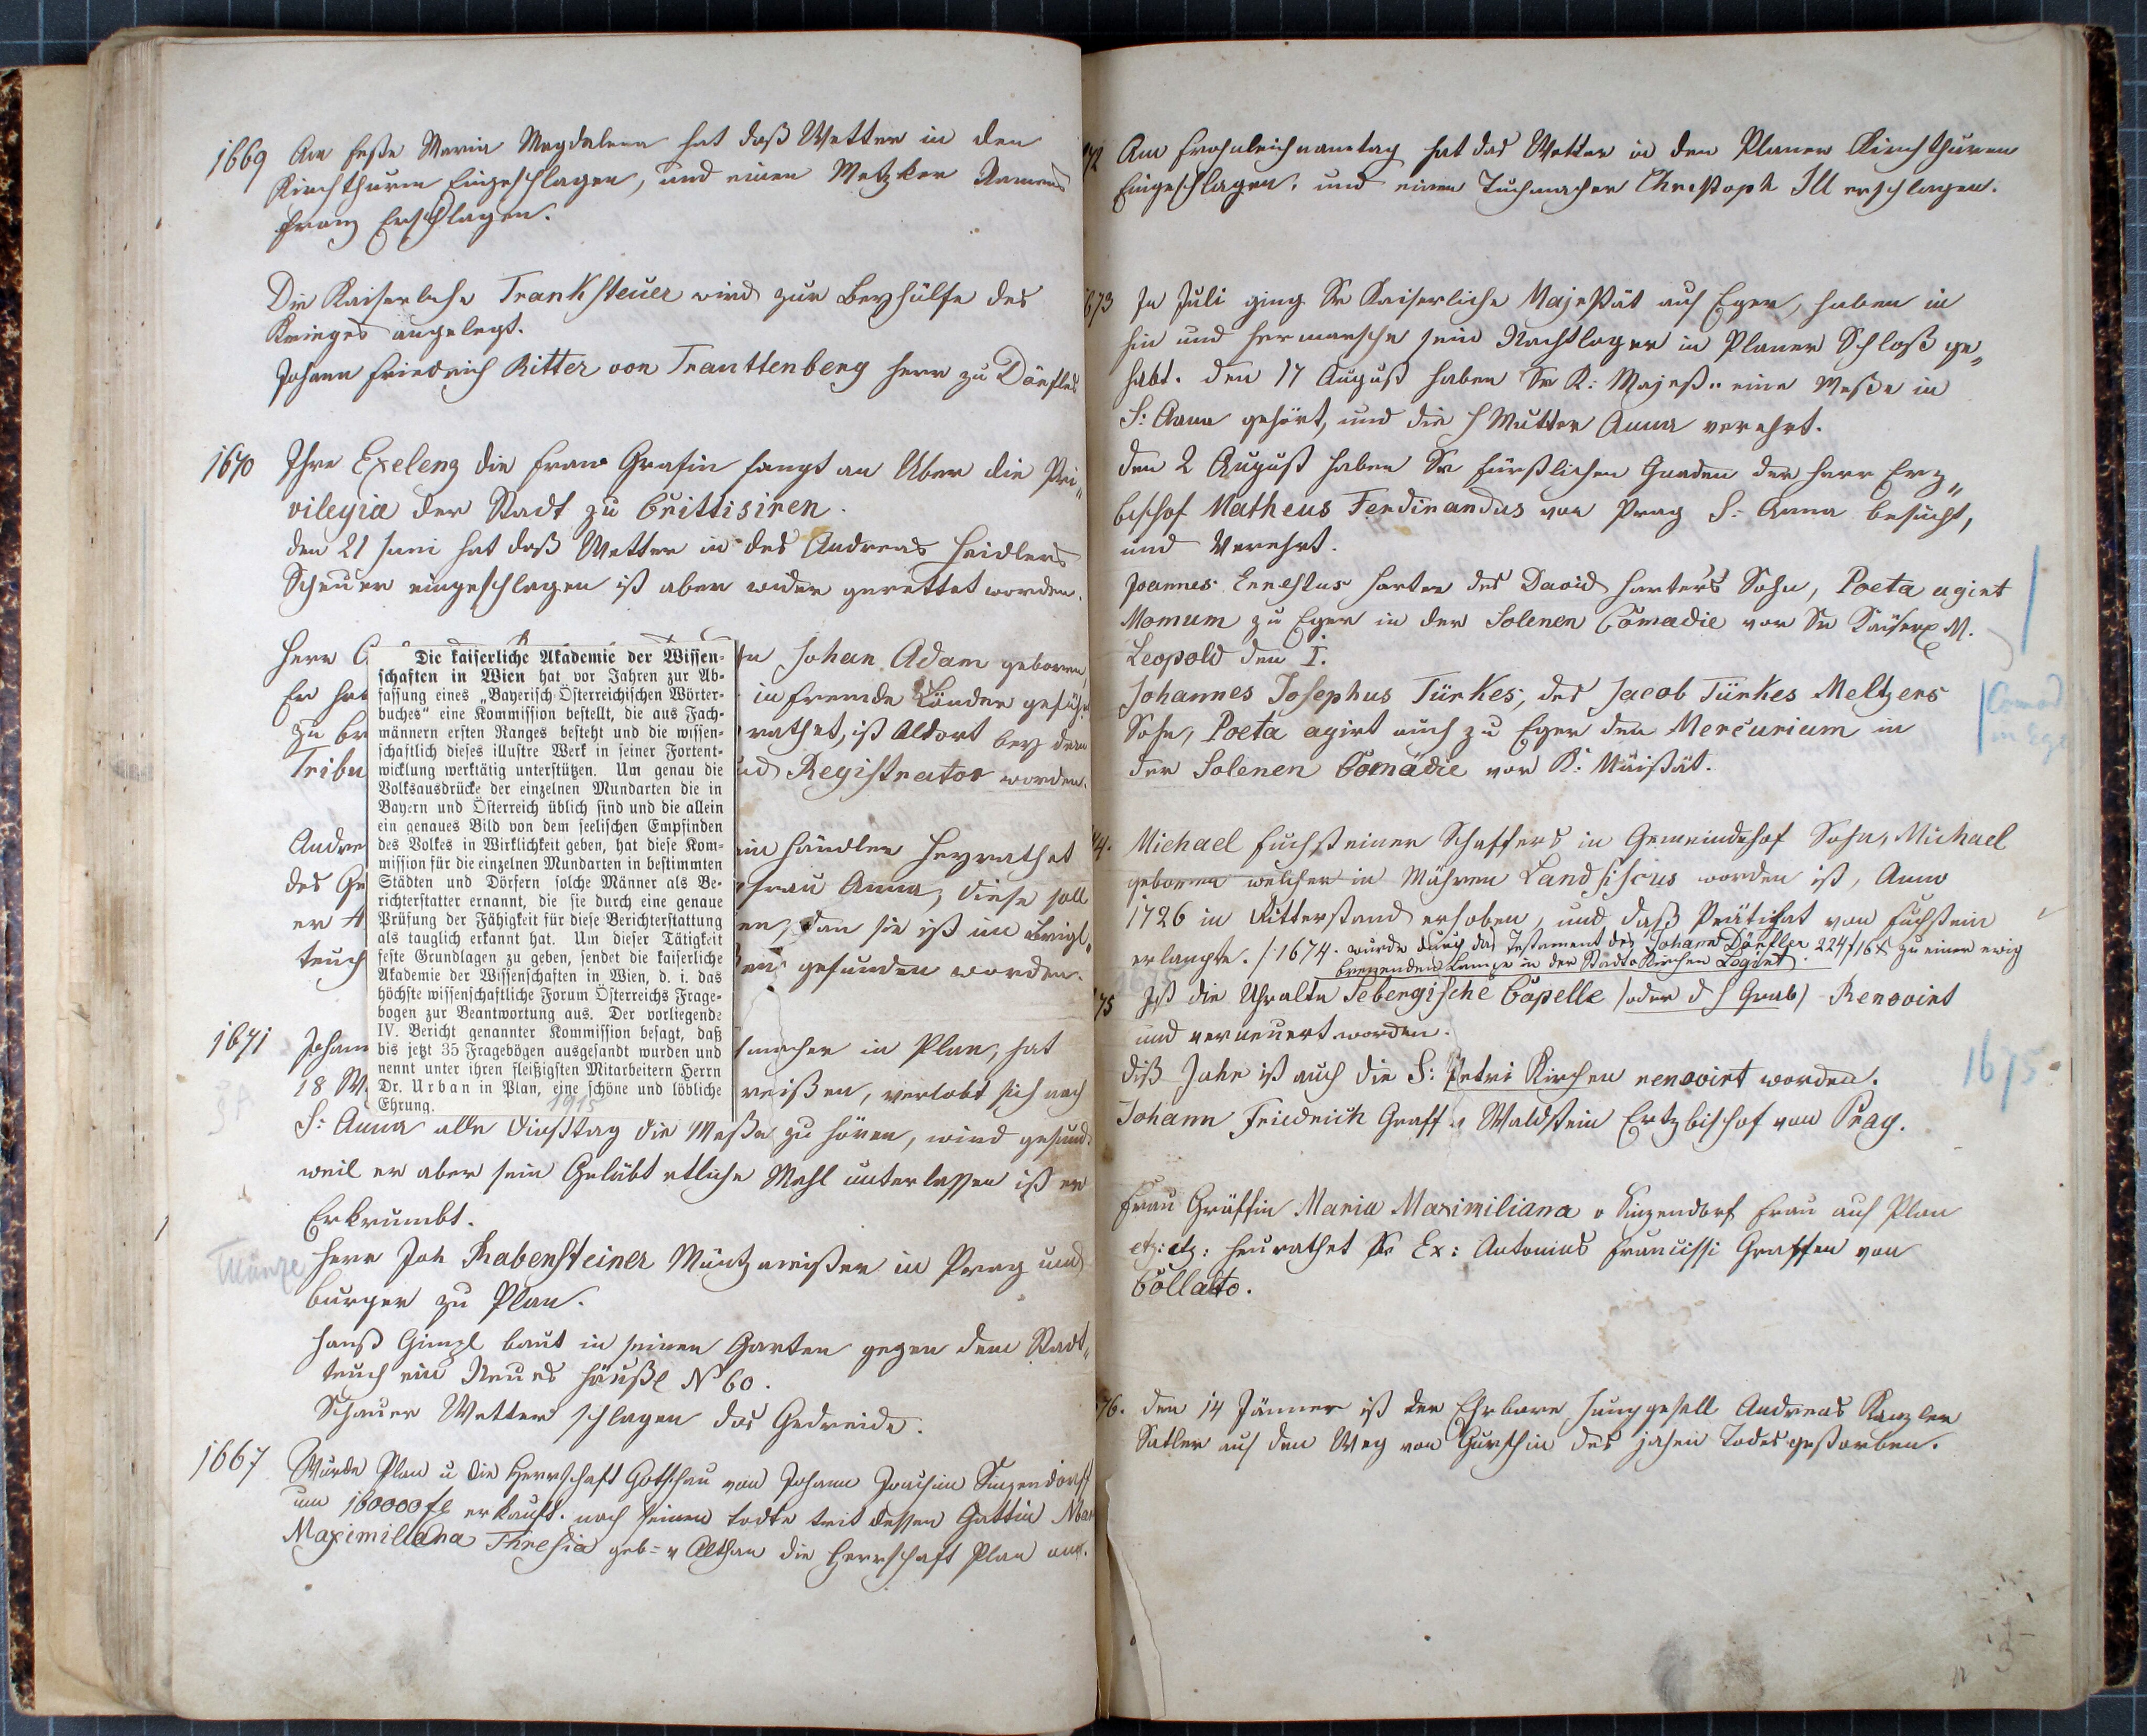 1669 Am Feste Maria Magdalena hat daß Wetter in den
Kirchthurm Eingeschlagen, und einen Metzker Namens
Franz Erschlagen.
Die Kaiserliche Tranksteuer wird zur Beyhülfe des
Krieges angelegt.
Johann Friedrich Ritter von Trauttenberg Herr zu Dörfles
1670 Ihre Exelenz die Frau Grafin fangt an Uber die Pri„
vilegia der Stadt zu Crittisiren.
den 21 Juni hat daß Wetter in des Andreas Heidlers
Scheuer eingeschlagen ist aber wider gerettet worden.
Herr Johan Adam geboren
Er hat in fremde Länder geführt
zu br rathet, ist Aldort bey dem
Tribu Registrator worden.
Andre Händler Heyrathet
des Ge frau Anna, diese soll
er A en, dan sie ist im Brigl„
teuch gefunden worden.
Die kaiserliche Akademie der Wissen-
schaften in Wien hat vor Jahren zur Ab-
fassung eines „Bayerisch-Österreichischen Wörter-
buches“ eine Kommission bestellt, die aus Fach-
männern ersten Ranges besteht und die wissen-
schaftlich dieses illustre Werk in seiner Fortent-
wicklung werktätig unterstützen. Um genau die
Volksausdrücke der einzelnen Mundarten die in
Bayern und Österreich üblich sind und die allein
ein genaues Bild von dem seelischen Empfinden
des Volkes in Wirklichkeit geben, hat diese Kom-
mission für die einzelnen Mundarten in bestimmten
Städten und Dörfern solche Männer als Be-
richterstatter ernannt, die sie durch eine genaue
Prüfung der Fähigkeit für diese Berichterstattung
als tauglich erkannt hat. Um dieser Tätigkeit
feste Grundlagen zu geben, sendet die kaiserliche
Akademie der Wissenschaften in Wien, d. i. das
höchste wissenschaftliche Forum Österreichs Frage-
bogen zur Beantwortung aus. Der vorliegende
IV. Bericht genannter Kommission besagt, daß
bis jetzt 35 Fragebögen ausgesandt wurden und
nennt unter ihren fleißigsten Mitarbeitern Herrn
Dr. Urban in Plan, eine schöne und löbliche
Ehrung. 1915
1671 Johann macher in Plan, hat
18 W reißen, verlobt sich nach
S: Anna alle Dinstag die Meße zu hören, wird gesund.
weil er aber sein Gelübt etliche Mahl unterlassen ist er
Erkrumbt.
Münze Herr Joh Rabensteiner Müntzmeister in Prag und
burger zu Plan.
Hanß Gimpl baut in seinen Garten gegen dem Stadt„
teuch ein Neues Häußl N 60.
Schauer Wetter schlagen das Gedreide.
1667 Wurde Plan u die Herrschaft Gottschau von Johann Joachim Sinzendorff
um 160000 fl erkauft. nach seinen todte trit dessen Gattin Mar
Maximiliana Thresia geb= v Althan die Herrschaft Plan an.
72 Am Frohnleichnamstag hat das Wetter in den Planer Kirchthurm
Eingeschlagen. und einen Tuchmacher Christoph Ill erschlagen.
673 In Juli ging Se Kaiserliche Majestät auf Eger, haben in
hin und her marsche sein Nachtlager in Planer Schloß ge„
habt. den 17 August haben Se K: Majest.. eine Meße in
S: Anna gehört, und die H Mutter Anna verehrt.
den 2 August haben Se fürstlichen Gnaden der Herr Erz„
bischof Matheus Ferdinandus von Prag S: Anna besucht,
und Verehrt.
Joannes Ernestus Harter des David Harters Sohn, Poeta agirt
Momum zu Eger in der Solenen Comædie vor Se Kaiserl M.
Leopold den I.
Johannes Josephus Türkes, des Jacob Türkes Meltzers
Sohn, Poeta agirt auch zu Eger den Mercurium in
der Solenen Comædie vor K: Maistät.
Comæd
in Eger
74. Michael Fuchs einer Schaffers in Gemeindehof Sohn, Michael
geboren welcher in Mähren Landfiscus worden ist, Anno
1726 in Ritterstand erhoben, und daß Prätichat von Fuchstein
erlangte. /1674. wurde durch das Testament des Johann Dörfler 224f 16x zu einer ewig
brenenden Lampe in der Stadt Kirchen Legirt
75 Ist die Uhralte Sebergische Capelle (oder d H Grab) Renovirt
und verneuert worden.
diß Jahr ist auch die S: Petri Kirchen renovirt worden.
1675
Johann Friedrich Graff v Waldstein Ertzbischof von Prag.
Frau Gräffin Maria Maximiliana v Sinzendorf Frau auf Plan
etz: etz: heurathet Se Ex: Antonius Francissi Graffen von
Collalto.
76. den 14 Jänner ist der Ehrbare Junggesell Andreas Kanzler
Satler auf den Weg von Gurschin des jähen Todes gestorben.